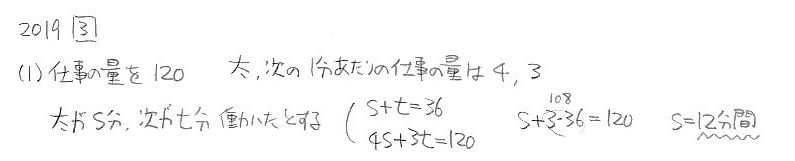 2019 3
(1) 仕事の量を120 太,次の1分あたりの仕事の量は4,3
太がs分,次がt分働いたとする ( s+t=36 4s+3t=120 s+3·36=120 108 s=12分間